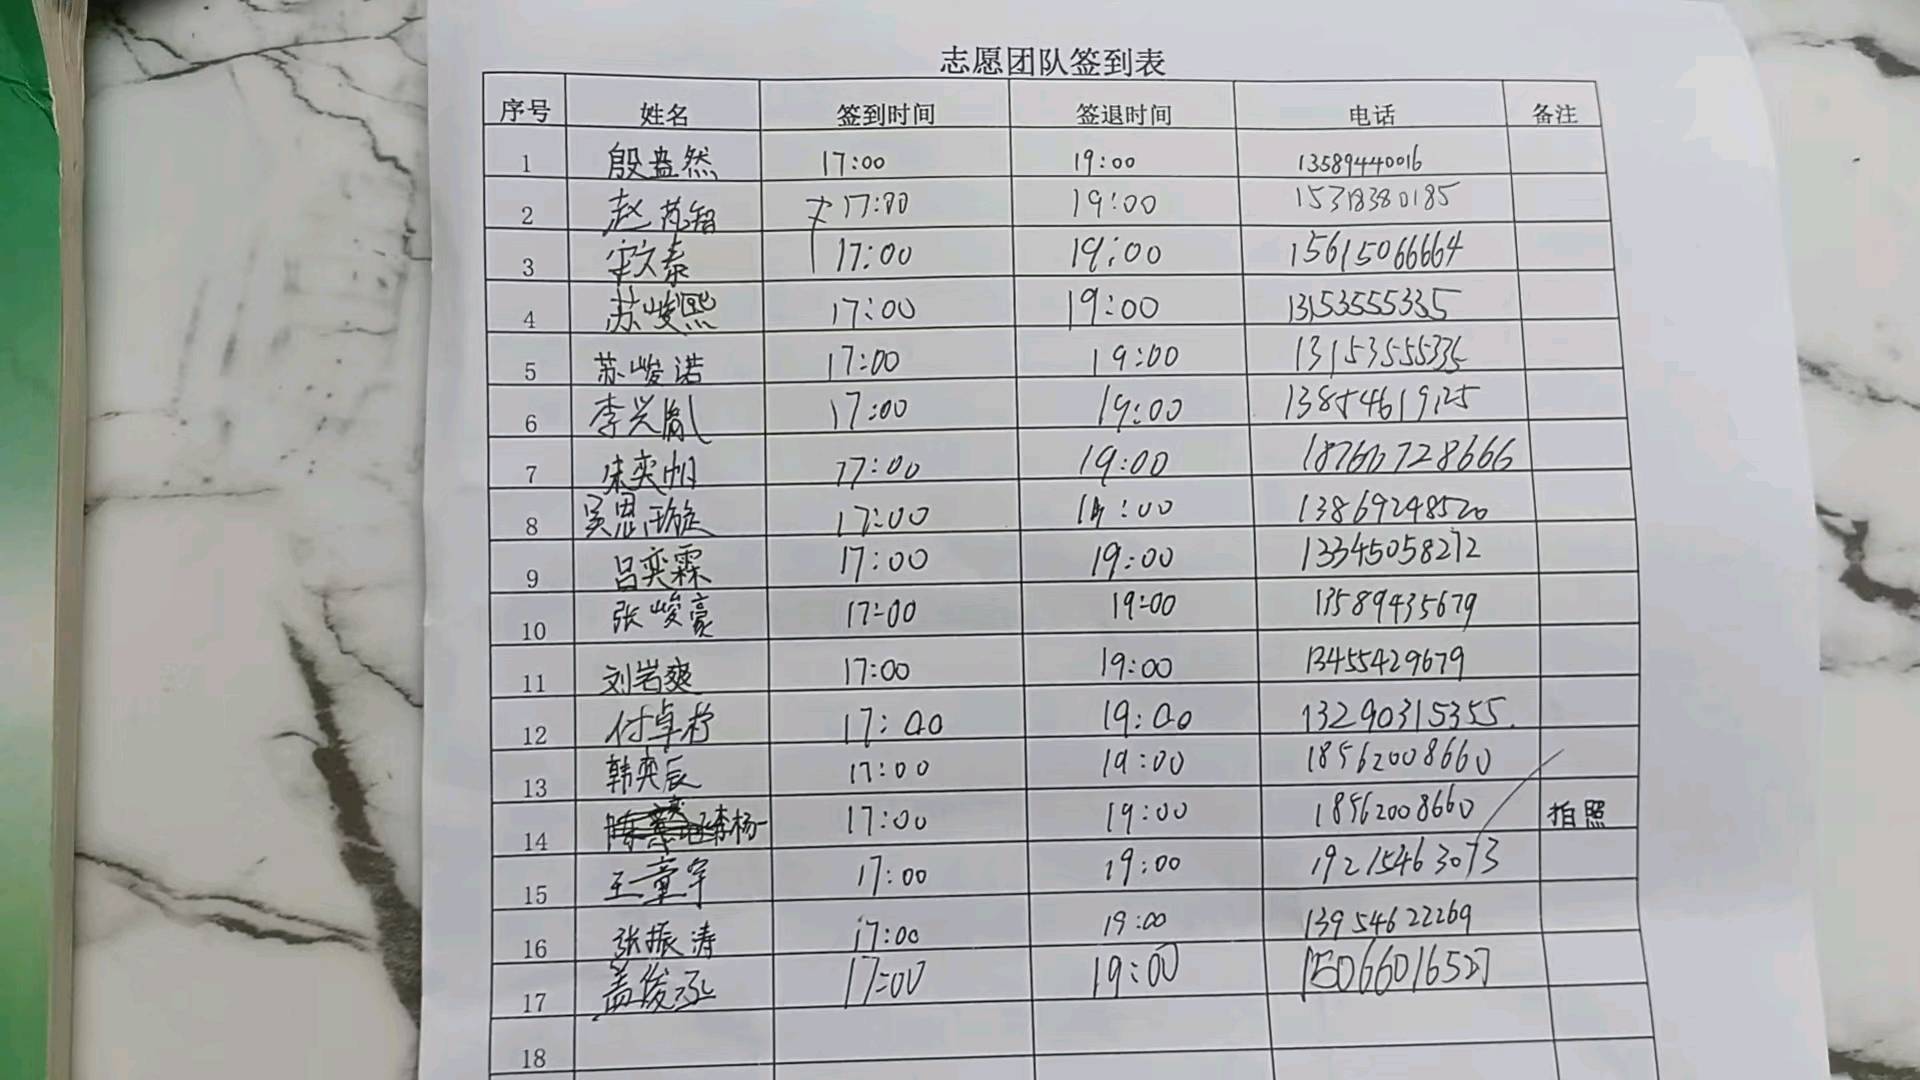 志愿团队签到表
序号 姓名 签到时间 签退时间 电话 备注
1 殷盎然 17:00 19:00 13589440016
2 赵芃智 17:00 19:00 15318380185
3 宋文泰 17:00 19:00 15615066664
4 苏峻熙 17:00 19:00 13153555335
5 苏峻诺 17:00 19:00 13153555335
6 李兴胤 17:00 19:00 13854619125
7 朱奕帆 17:00 19:00 18766728666
8 吴思璇 17:00 19:00 13869248520
9 吕奕霖 17:00 19:00 13345058272
10 张峻豪 17:00 19:00 13589435679
11 刘岩爽 17:00 19:00 13455429679
12 付卓柠 17:00 19:00 13290315355.
13 韩奕辰 17:00 19:00 18562008660
14 李杨一 17:00 19:00 18562008660 拍照
15 王童宇 17:00 19:00 19215463073
16 张振涛 17:00 19:00 13954622269
17 盖俊丞 17:00 19:00 15066016527
18